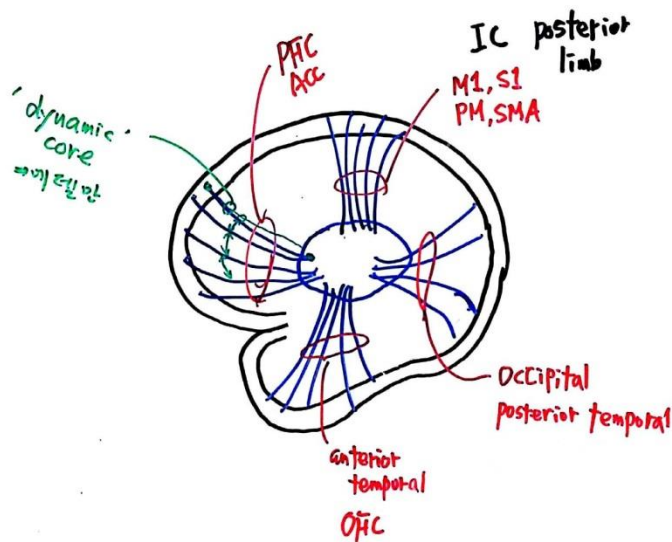 IC posterior
limb
PFC
ACC
M1, S1
PM, SMA
'dynamic'
core
occipital
posterior temporal
anterior
temporal
OFC